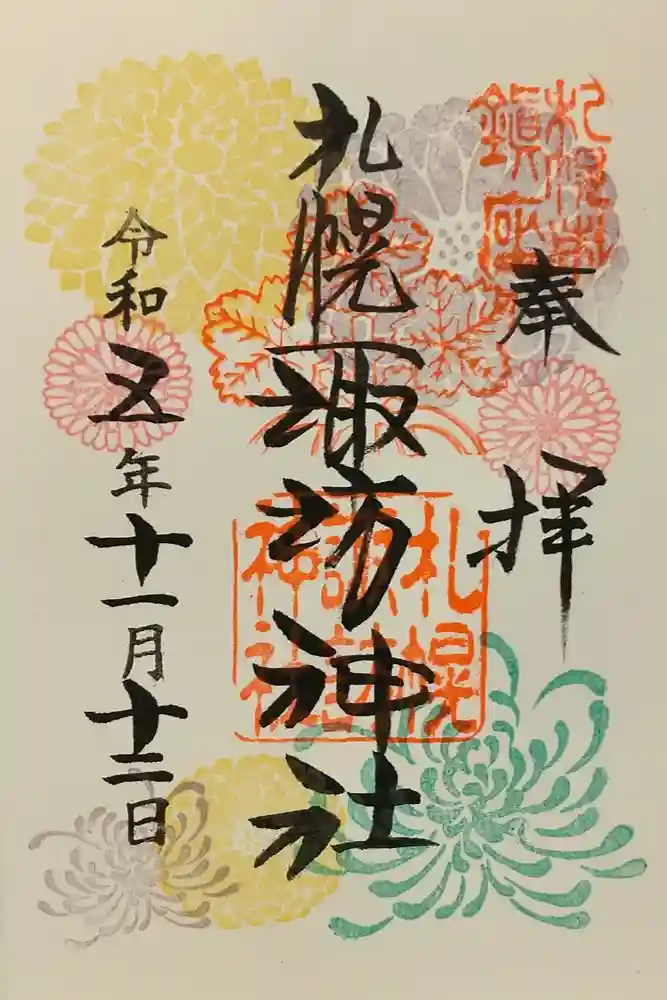 札幌鎮座
奉拝
札幌諏訪神社
札幌諏訪神社
令和五年十一月十二日